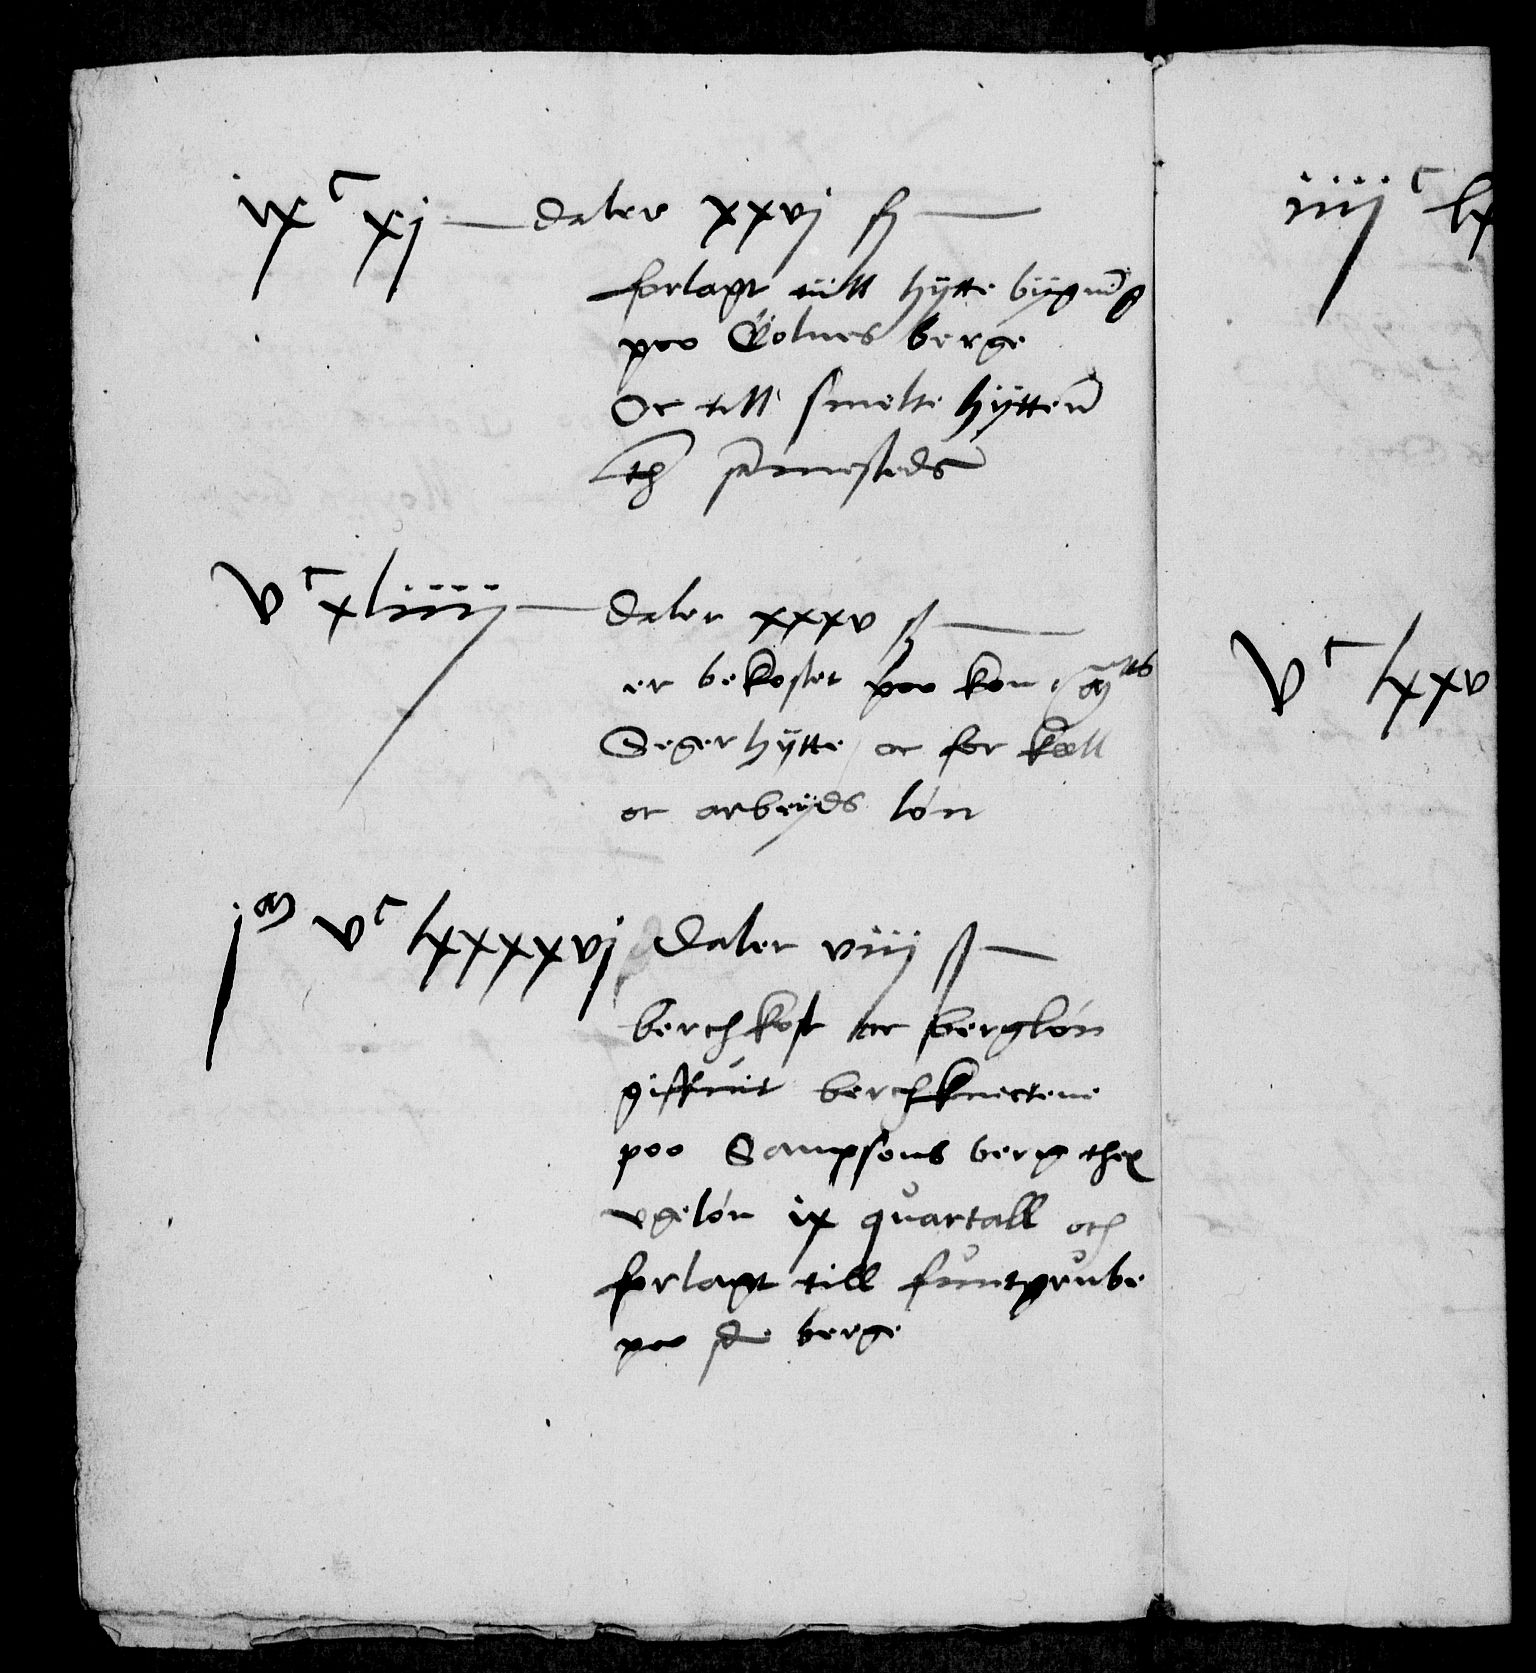 ixc xj daler xxvj ß
forlagt till hÿtte bÿgni̅g
poo Gölnes berge
Oc till smelte hÿtten̅
th samesteds
vc xliiij daler xxxv ß
er bekostet poo kon maᵗᵗˢ
Seger hÿtte / oc for koell
oc arbeyds lón
jm vc lxxxxvj daler viij ß
berchkost oc berglón
giffuit berchknectene
poo Sampsons berg ther
vgelón ix quartall och
forlagt till funtgrube
poo sa̅e berge
iiijc lx
vc lxxv